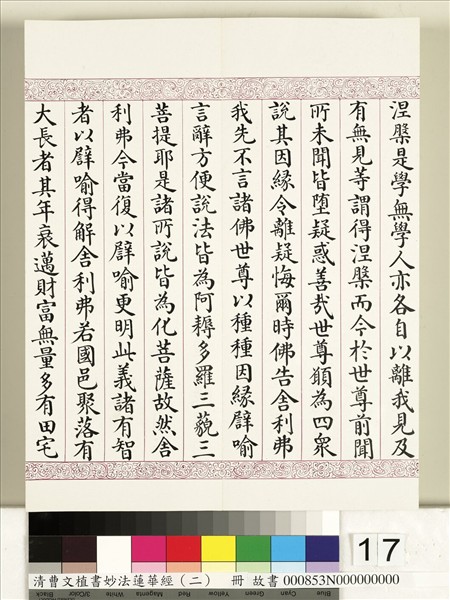 涅槃是學無學人亦各自以離我見及
有無見等謂得涅槃而今於世尊前聞
所未聞皆墮疑惑善哉世尊願為四眾
說其因緣令離疑悔爾時佛告舍利弗
我先不言諸佛世尊以種種因緣譬喻
言辭方便說法皆為阿耨多羅三藐三
菩提耶是諸所說皆為化菩薩故然舍
利弗今當復以譬喻更明此義諸有智
者以譬喻得解舍利弗若國邑聚落有
大長者其年衰邁財富無量多有田宅
17
清曹文植書妙法蓮華經(二) 冊 故書 000853N000000000
Black 3/Color White Magenta Red Yellow Green Cyan Blue